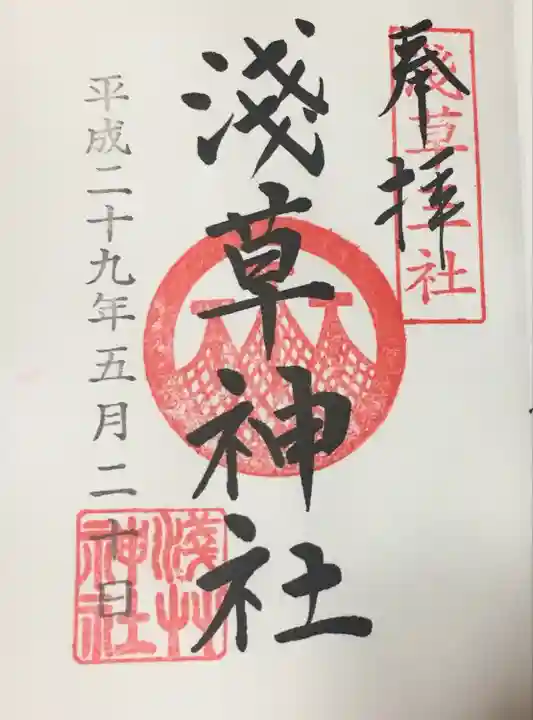 奉拝
淺草三社
淺草神社
平成二十九年五月二十日
淺草神社